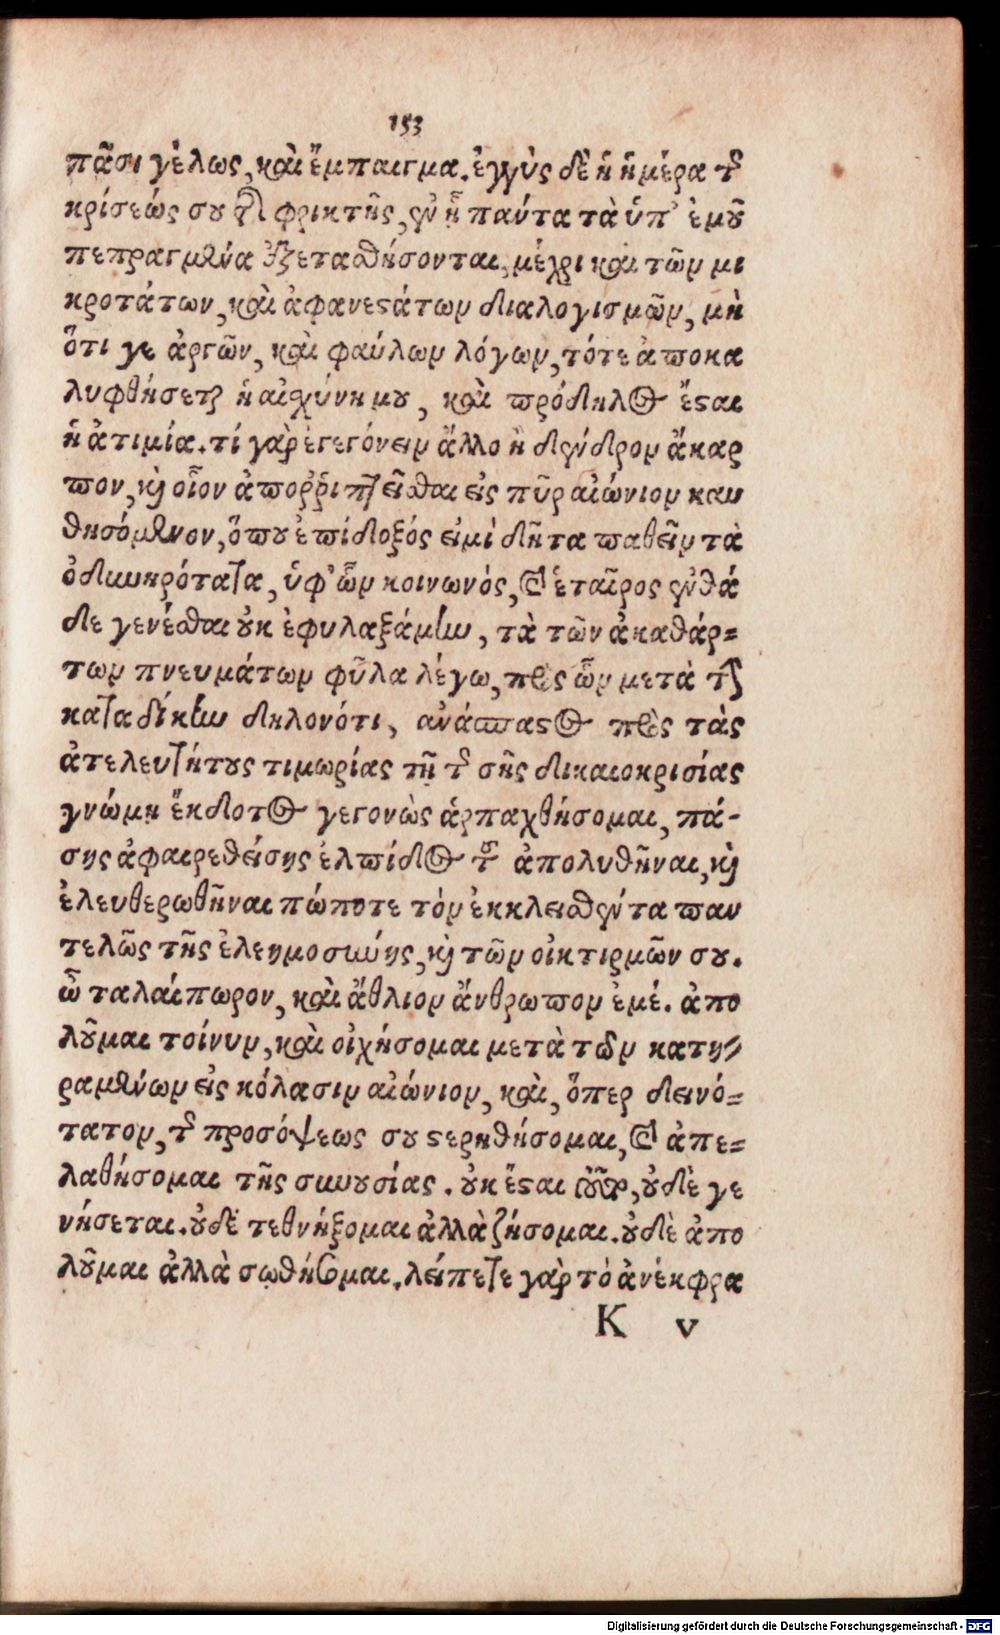 153
πᾶσι γέλως, καὶ ἔμπαιγμα. ἐγγὺς δὲ ἡ ἡμέρα τῆς
κρίσεώς σου τῆς φρικτῆς, ἐν ᾗ πάντα τὰ ὑπ' ἐμοῦ
πεπραγμένα ἐξετασθήσονται, μέχρι καὶ τῶν μι
κροτάτων, καὶ ἀφανεστάτων διαλογισμῶν, μὴ
ὅτι γε ἀργῶν, καὶ φαύλων λόγων, τότε ἀποκα
λυφθήσεται ἡ αἰσχύνη μου, καὶ πρόδηλος ἔσται
ἡ ἀτιμία. τί γὰρ ἐγεγόνειν ἄλλο ἢ δένδρον ἄκαρ
πον, καὶ οἷον ἀποῤῥίπτεῖσθαι εἰς πῦρ αἰώνιον καυ
θησόμενον, ὅπου ἐπίδοξός εἰμὶ δῆτα παθεῖν τὰ
ὀδυνηρότατα, ὑφ' ὧν κοινωνὸς, καὶ ἑταῖρος ἐνθά
δε γενέσθαι οὐκ ἐφυλαξάμην, τὰ τῶν ἀκαθάρ=
των πνευμάτων φῦλα λέγω, πρὸς ὧν μετὰ τὴν
καταδίκην δηλονότι, ἀνάπαστος πρὸς τὰς
ἀτελευτήτους τιμωρίας τῇ τῆς σῆς δικαιοκρισίας
γνώμῃ ἔκδοτος γεγονὼς ἁρπαχθήσομαι, πά-
σης ἀφαιρεθείσης ἐλπίδος τοῦ ἀπολυθῆναι, καὶ
ἐλευθερωθῆναι πώποτε τὸν ἐκκλεισθέντα παν
τελῶς τῆς ἐλεημοσύνης, καὶ τῶν οἰκτιρμῶν σου.
ὢ ταλαίπωρον, καὶ ἄθλιον ἄνθρωπον ἐμέ. ἀπο
λοῦμαι τοίνυν, καὶ οἰχήσομαι μετὰ τῶν κατη=
ραμένων εἰς κόλασιν αἰώνιον, καὶ, ὅπερ δεινό=
τατον, τῆς προσόψεως σου στερηθήσομαι, καὶ ἀπε=
λαθήσομαι τῆς συνουσίας. οὐκ ἔσται οὕτω, οὐδὲ γε
νήσεται. οὐδὲ τεθνήξομαι ἀλλὰ ζήσομαι. οὐδὲ ἀπο
λοῦμαι ἀλλὰ σωθήσομαι. λείπεται γὰρ τὸ ἀνέκφρα
K v
Digitalisierung gefördert durch die Deutsche Forschungsgemeinschaft - DFG